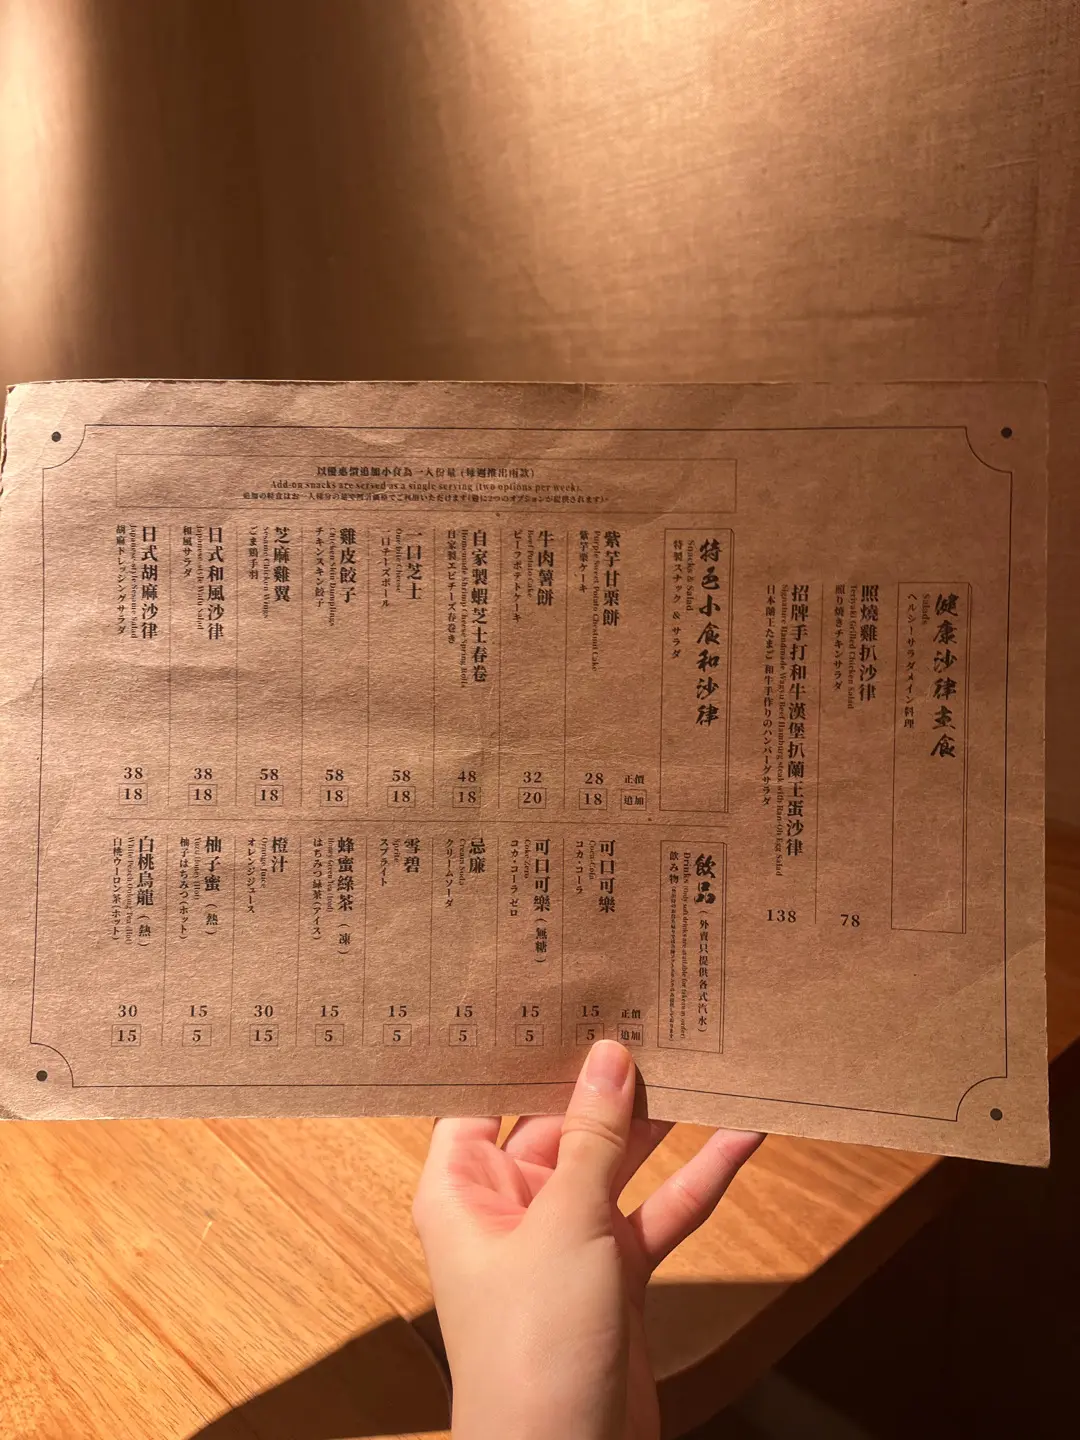 健康沙律主食
Salads
ヘルシーサラダメイン料理
照燒雞扒沙律
Teriyaki Grilled Chicken Salad
照り焼きチキンサラダ
78
招牌手打和牛漢堡扒蘭王蛋沙律
Signature Handmade Wagyu Beef Hamburg steak with Ran-Oh Egg Salad
日本蘭王たまご 和牛手作りのハンバーグサラダ
138
以優惠價追加小食為一人份量 (每週推出兩款)
Add-on snacks are served as a single serving (two options per week).
特色小食和沙律
Snacks & Salad
特製スナック & サラダ
正價
追加
紫芋甘栗餅
Purple Sweet Potato Chestnut Cake
紫芋栗ケーキ
28
18
牛肉薯餅
Beef Potato Cake
ビーフポテトケーキ
32
20
自家製蝦芝士春卷
Homemade Shrimp Cheese Spring Rolls
自家製エビチーズ春巻き
48
18
一口芝士
One-bite Cheese
一口チーズボール
58
18
雞皮餃子
Chicken Skin Dumplings
チキンスキン餃子
58
18
芝麻雞翼
Sesame Chicken Wings
ごま鶏手羽
58
18
日式和風沙律
Japanese-style Wafu Salad
和風サラダ
38
18
日式胡麻沙律
Japanese-style Sesame Salad
胡麻ドレッシングサラダ
38
18
飲品 (外賣只提供各式汽水)
Drinks (Only soft drinks are available for takeaway orders)
飲み物
正價
追加
可口可樂
Coca-Cola
コカ・コーラ
15
5
可口可樂 (無糖)
Coke Zero
コカ・コーラ ゼロ
15
5
忌廉
Cream Soda
クリームソーダ
15
5
雪碧
Sprite
スプライト
15
5
蜂蜜綠茶 (凍)
Honey Green Tea (Iced)
はちみつ緑茶 (アイス)
15
5
橙汁
Orange Juice
オレンジジュース
30
15
柚子蜜 (熱)
Yuzu Honey (Hot)
柚子はちみつ (ホット)
15
5
白桃烏龍 (熱)
White Peach Oolong Tea (Hot)
白桃ウーロン茶 (ホット)
30
15